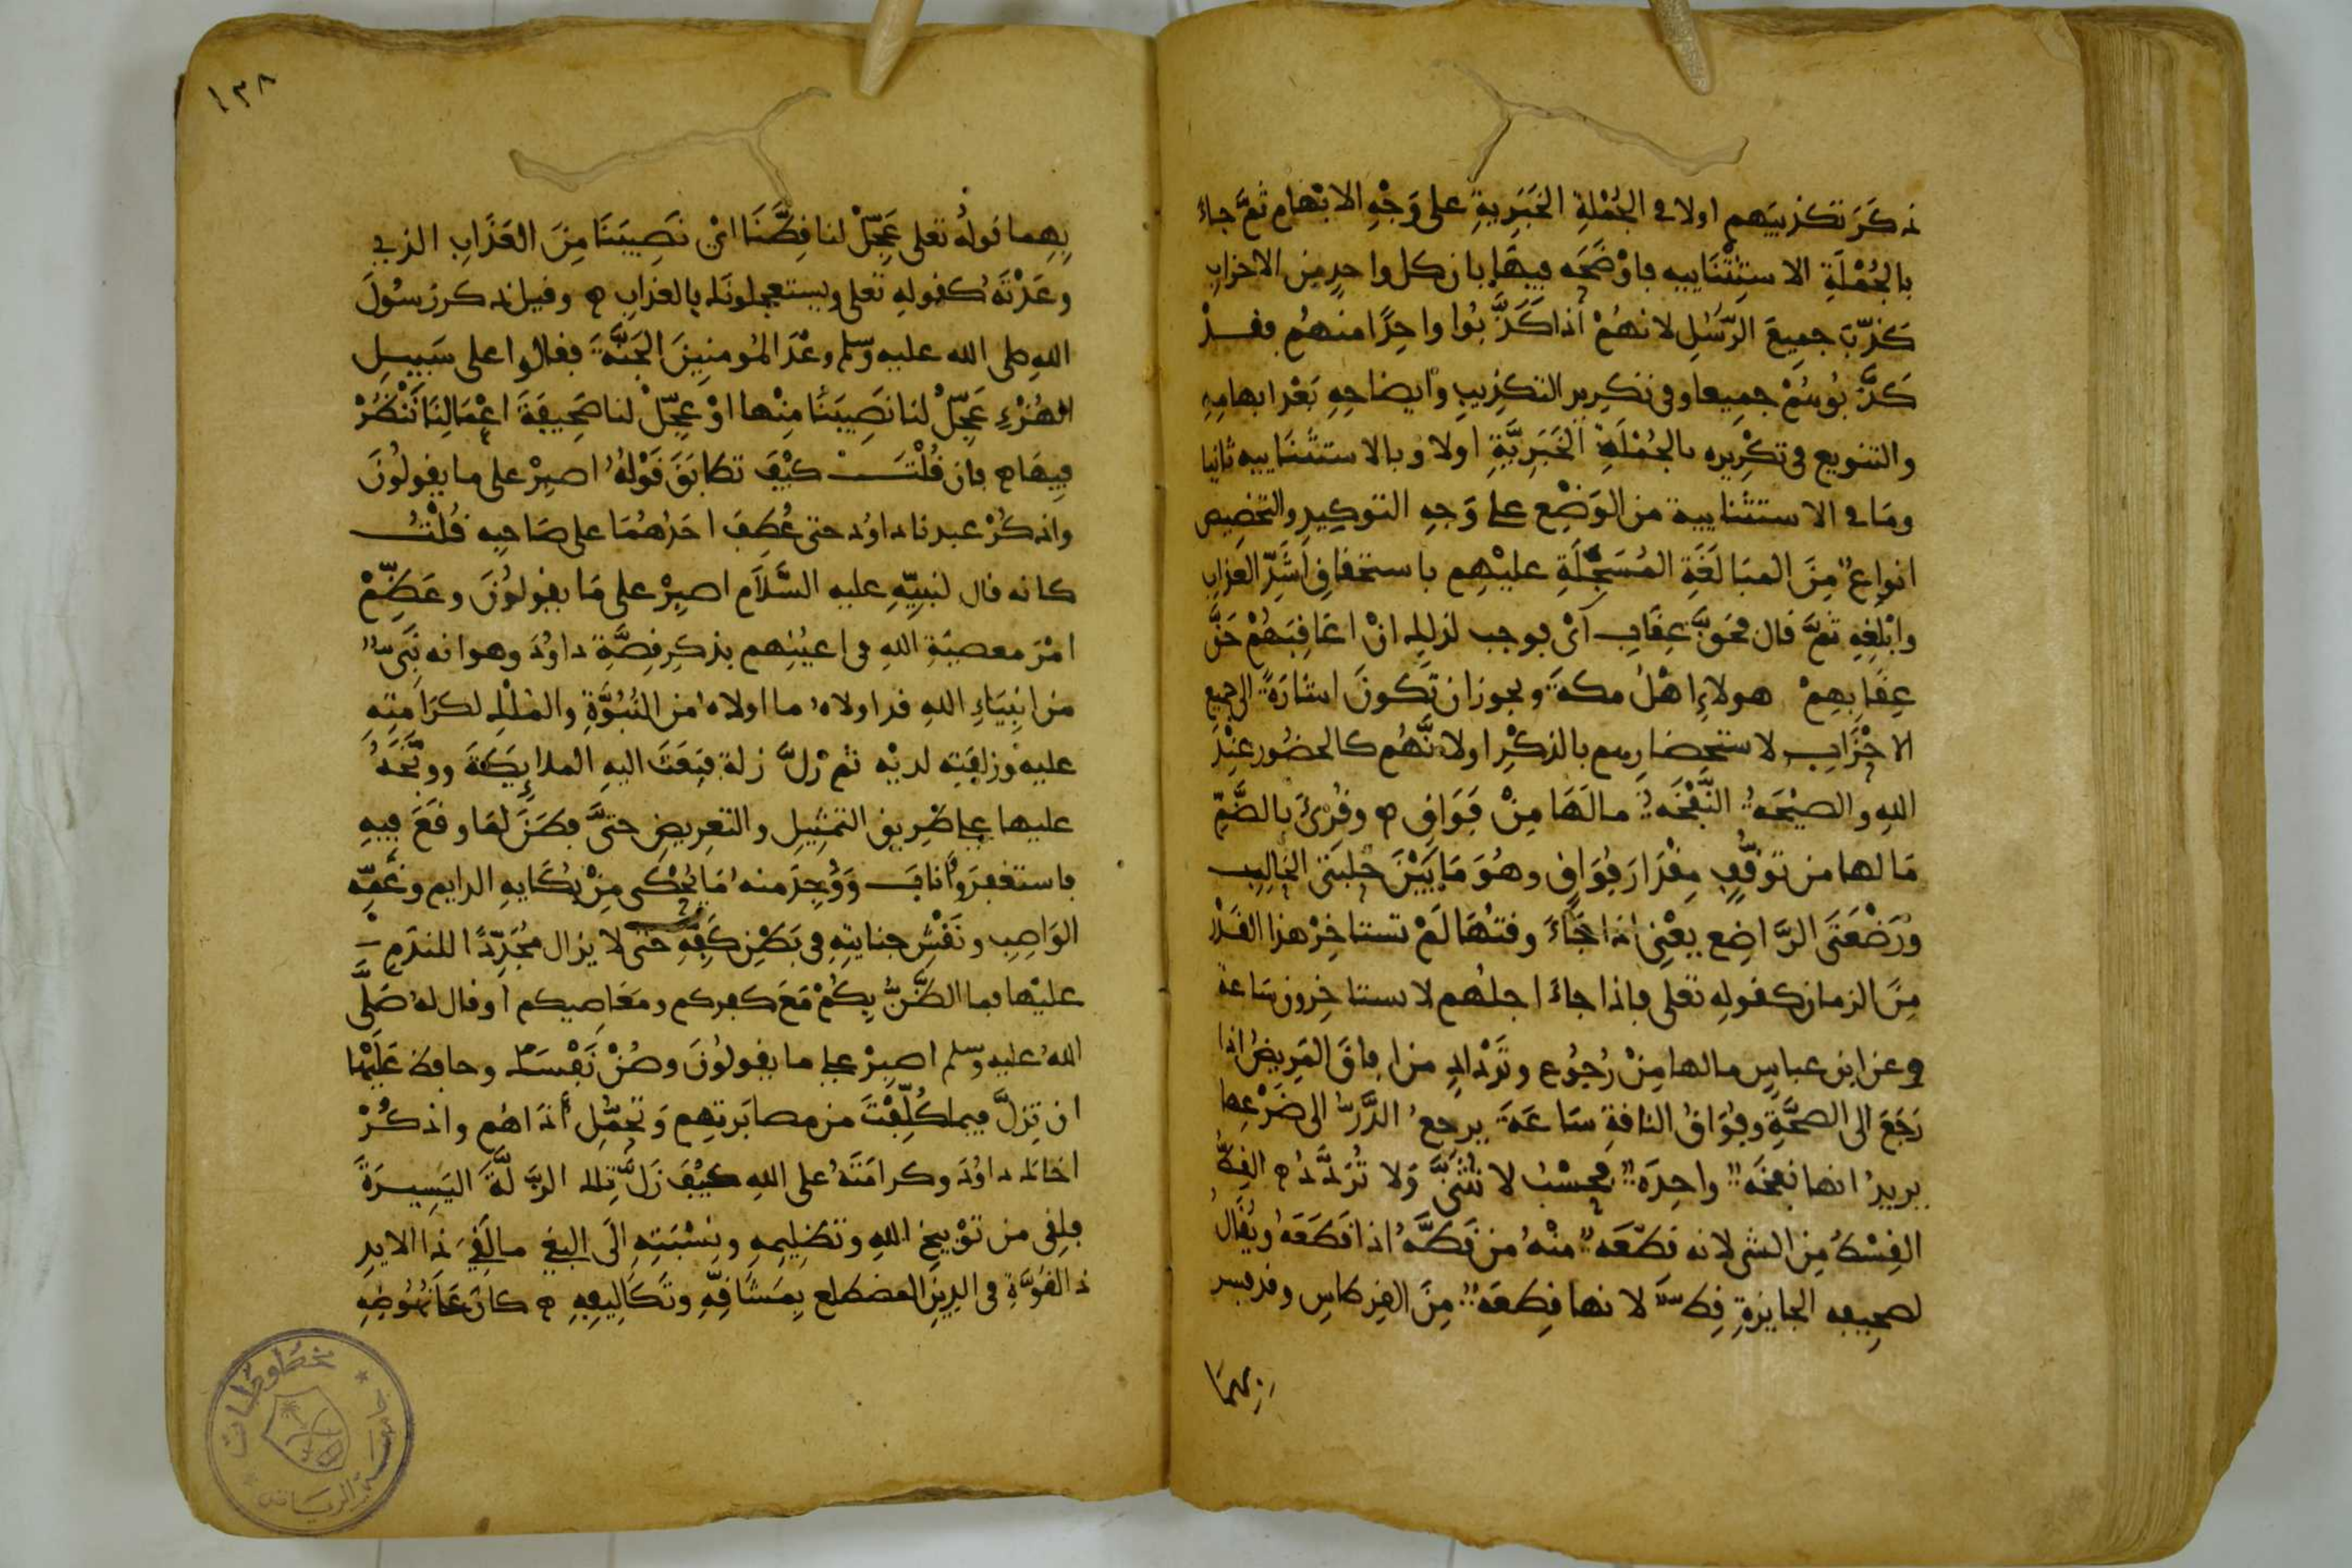 ذكر تكذيبهم اولا في الجُمْلةِ الخَبَرِيةِ على وَجْهِ الابْهام ثمَّ جاءَ
بالجُمْلَةِ الاستثنَاييه فاوْضَحَه فيهَا بان كل واحدٍ مِن الاحزاب
كذّبَ جميعَ الرّسُلِ لانهُمْ اذا كَذَّبُوا واحِدًا منهُم فقدْ
كَذَّبُوهُمْ جميعا وفى تكرِيرِ التكذِيبِ وايضاحِهِ بَعْدَ ابهامِهِ
والتنويع فى تكْرِيرِه بالجُمْلَةِ الخَبَرِيَّةِ اولا وبالاستثنَاييه ثانيا
ومَا في الاستثناييه من الوَضْعِ على وَجهِ التوكِيدِ والتخصِيص
انواعٌ مِنَ المبَالَغَةِ المُسَجَّلَةِ عليْهِم باستحقاقِ اشَدِّ العَذابِ
وابْلَغِهِ ثمَّ قال فحَقَّ عِقَابِ اىْ فوجب لذلك انْ اعَاقِبَهُمْ حَقَّ
عِقَابِهِمْ هولاءِ اهْلُ مكةَ ويجوز ان تَكُونَ اشَارَةً الى جميع
الاحْزَابِ لاستحْضارهم بالذكْرِ اولانَّهُم كالحضُور عِنْدَ
اللهِ والصيْحَةُ النَّفْخَةُ مالَهَا مِنْ فَوَاقٍ ه وقُرِىَ بالضَّمِّ
مَالها من توَقُّفٍ مِقْدَارَ فُوَاقٍ وهُوَ مَا بَيْنَ حَلبَتَىِ الحَالِبِ
ورَضْعَتَىِ الرَّاضِع يعْنِى اذا جَاءَ وقتُهَا لَمْ تستاخِرْ هذا القَدْر
مِنَ الزمان كقولِهِ تعلى فاذا جاءَ اجلُهُم لا يستاخِرون سَاعة
وعن ابن عباسٍ مالها مِنْ رُجُوعٍ وتَرْدادٍ من افاقَ المَرِيضُ اذا
رَجَعَ الى الصحَّةِ وفُوَاقُ الناقةِ سَاعَةَ يرجعُ الدَّرُّ الى ضَرْعِها
يريدُ انها نفخَةٌ واحِدَةٌ فحسْبُ لا تُثَنَّى وَلا تُرَدَّدُ ه القِطُّ
القِسْطُ مِن الشى لانه قطْعَةٌ منْهُ من قَطَّهُ اذا قطَعَهُ ويُقَالُ
لصحِيفِه الجايزةِ قِطٌّ لانها قِطعَةٌ مِنَ القِرْطاسِ وقد فسر
بهما
١٣٨
بِهِما قولهُ تعلى عَجِّلْ لنا قِطَّنَا اىْ نَصِيبَنَا مِنَ العَذَابِ الذى
وعَدْتَهُ كقولهِ تعلى ويستعجلونَك بالعذابِ ه وقيل ذكر رسُولُ
اللهِ صلى الله عليه وسلم وعْدَ المُومنِينَ الجَنَّةَ فقالوا على سَبِيلِ
الهُزْءِ عَجِّلْ لنا نَصِيبَنَا مِنْها اوْ عجِّلْ لنا صَحِيفَةَ اعْمَالِنَا نَنْظُرْ
فيهَا ه فان قُلْتَ كيْفَ تطابَقَ قَوْلُهُ اصبِرْ على ما يقولُونَ
واذكُرْ عبدنا داوُد حتى عُطِفَ احَدُهُمَا على صَاحبِهِ قُلْتُ
كانه قال لنبيِّهِ عليه السَّلَام اصبِرْ على مَا يقولونَ وعَظِّمْ
امْرَ معصيَةِ اللهِ فى اعيُنِهم بذكرِ قِصَّةِ داوُدَ وهو انه نَبِىٌّ
من انبِيَاءِ اللهِ قد اولاهُ ما اولاهُ من النُبُوَّةِ والمُلْكِ لكرَامَتِهِ
عليه وزلفَتِه لديْهِ ثم زلَّ زلة فبَعَثَ اليهِ الملايِكَةَ ووبَّخَهُ
عليها على طَرِيقِ التمْثِيلِ والتعرِيضِ حتىَّ فطَنَ لمَا وقَعَ فيهِ
فاستغفَرَ واَنابَ وَوُجِدَ منه مَا يُحْكَى مِنْ بُكَايهِ الدايم وغَمِّهِ
الوَاصِبِ ونَقْشِ جنايتِهِ فى بَطْنِ كَفِّهِ حَتى لا يزال مُجَدِّدًا للندَمِ
عليْها فما الظَّنُّ بِكُمْ مَعَ كفركم ومعَاصِيكم او قال له صَلَّى
اللهُ عليه وسلم اصبِرْ على ما يقولُونَ وصُنْ نَفْسَك وحافظ عَلَيْهَا
ان تزلَّ فيما كُلِّفْتَ من مصابَرتِهِم وَتحَمُّلِ أذَاهُم واذكُرْ
اخاك داوُدَ وكرامَتَهُ على اللهِ كيْفَ زَلَّ تِلك الزَّلَّةَ اليَسِيرَةَ
فلِقى من توْبِيخِ اللهِ وتظلِيمِهِ ونِسْبَتِهِ إلَى البغى مالَقِىَ ذَا الايدِ
ذا القُوَّةِ فى الدِينِ المضطلع بِمَشَاقِّهِ وتكَالِيفِهِ ه كان عَلَى نُهُوضِهِ
مخطوطات
جامعة الرياض